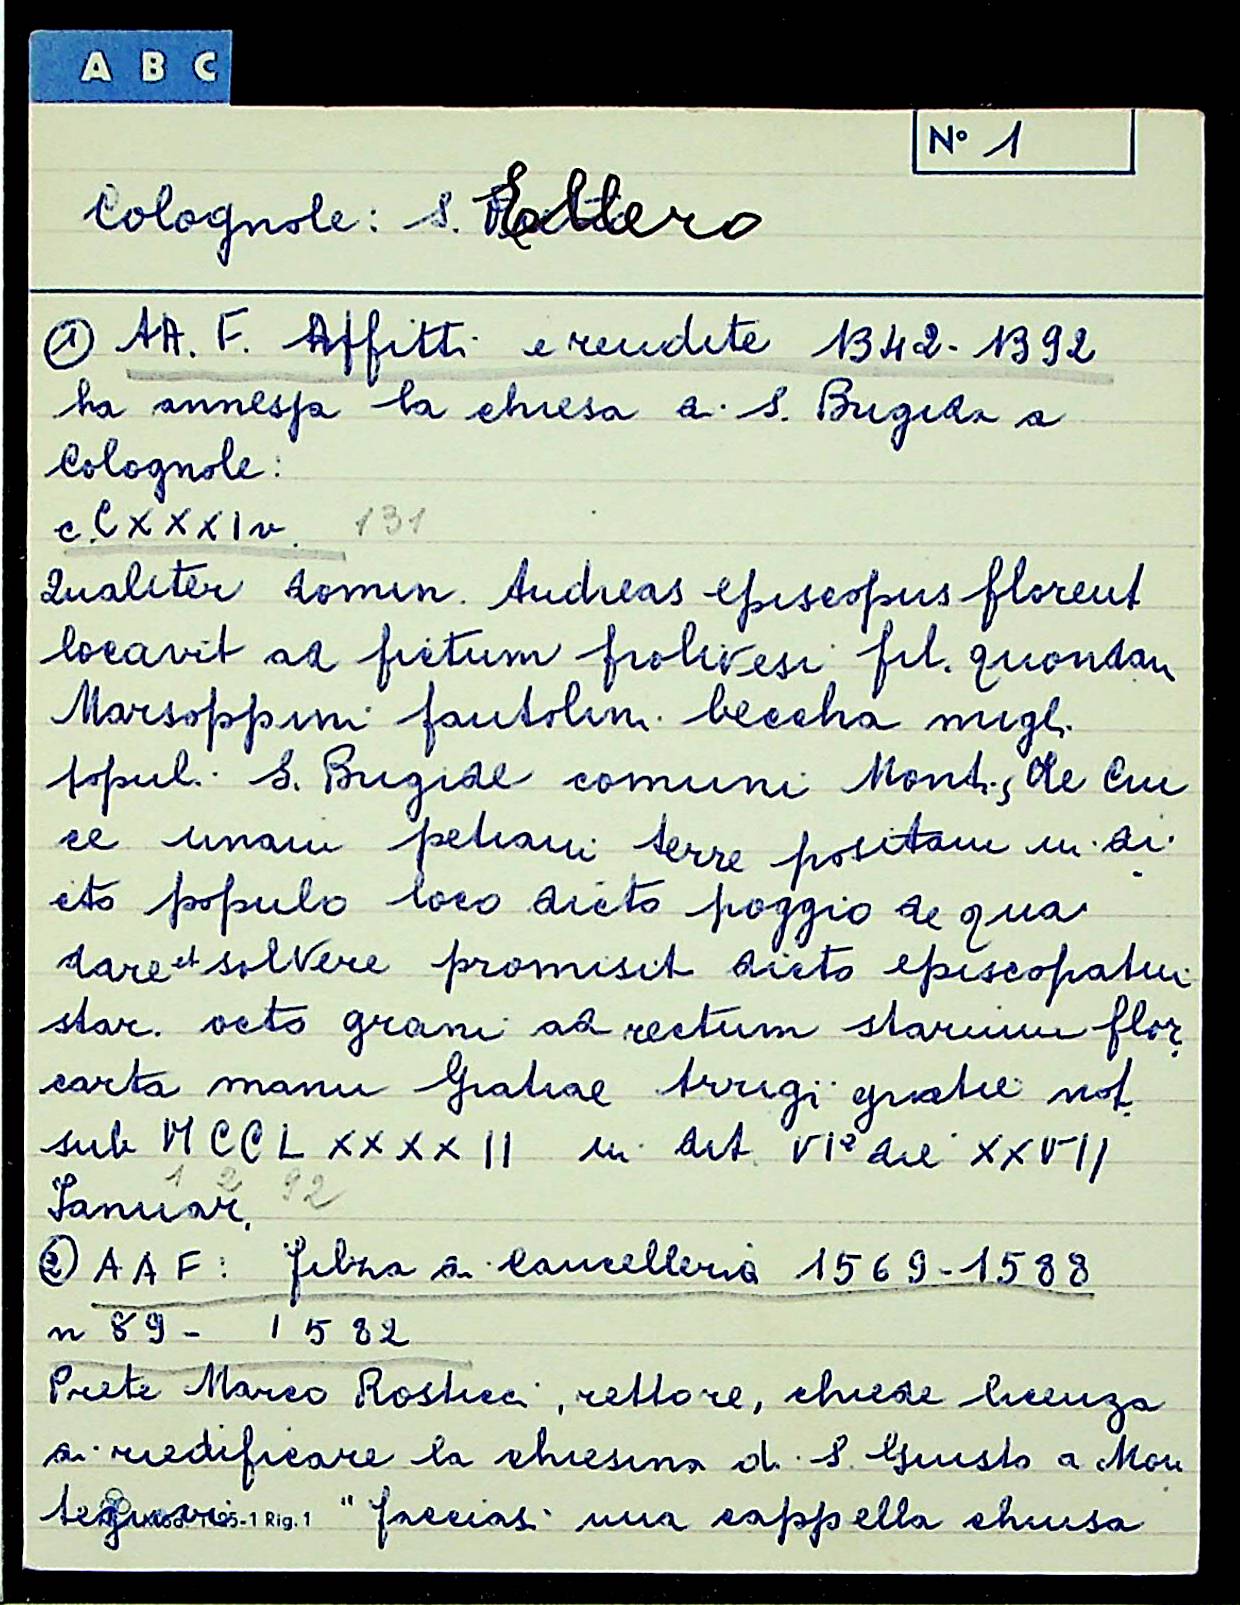 A B C
Nº 1
Colognole: S. Ellero
① AA. F. Affitti e rendite 1342-1392
ha annessa la chiesa di S. Brigida a
Colognole:
c. CXXXIv. 131
Qualiter domin. Andreas episcopus florent
locavit ad fictum fil. quondam
Marsoppini beccha
popul. S. Brigide comuni Mont. de Cru
ce unam petiam terre positam in di
cto populo loco dicto poggio de qua
dare et solvere promisit dicto episcopatui
star. octo grani ad rectum starium flor.
carta manu Gratiae Arrigi gratie not.
sub MCCLXXXXII in dit. VIª die XXVII
1 2 92
Ianuar.
② AAF: filza di Cancelleria 1569-1588
n 89- 1582
Prete Marco Rosticci, rettore, chiede licenza
di riedificare la chiesina di S. Giusto a Mon
"facciasi una cappella chiusa
5-1 Rig. 1